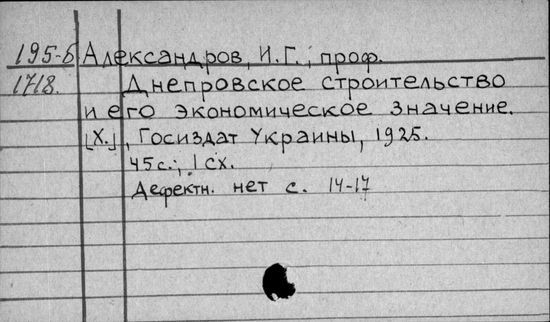 195-б Александров, И.Г., проф.
1718. Днепровское строительство
и его экономическое значение.
[Х.], Госиздат Украины, 1925.
45с.; 1 сх.
Дефектн. нет с. 14-17